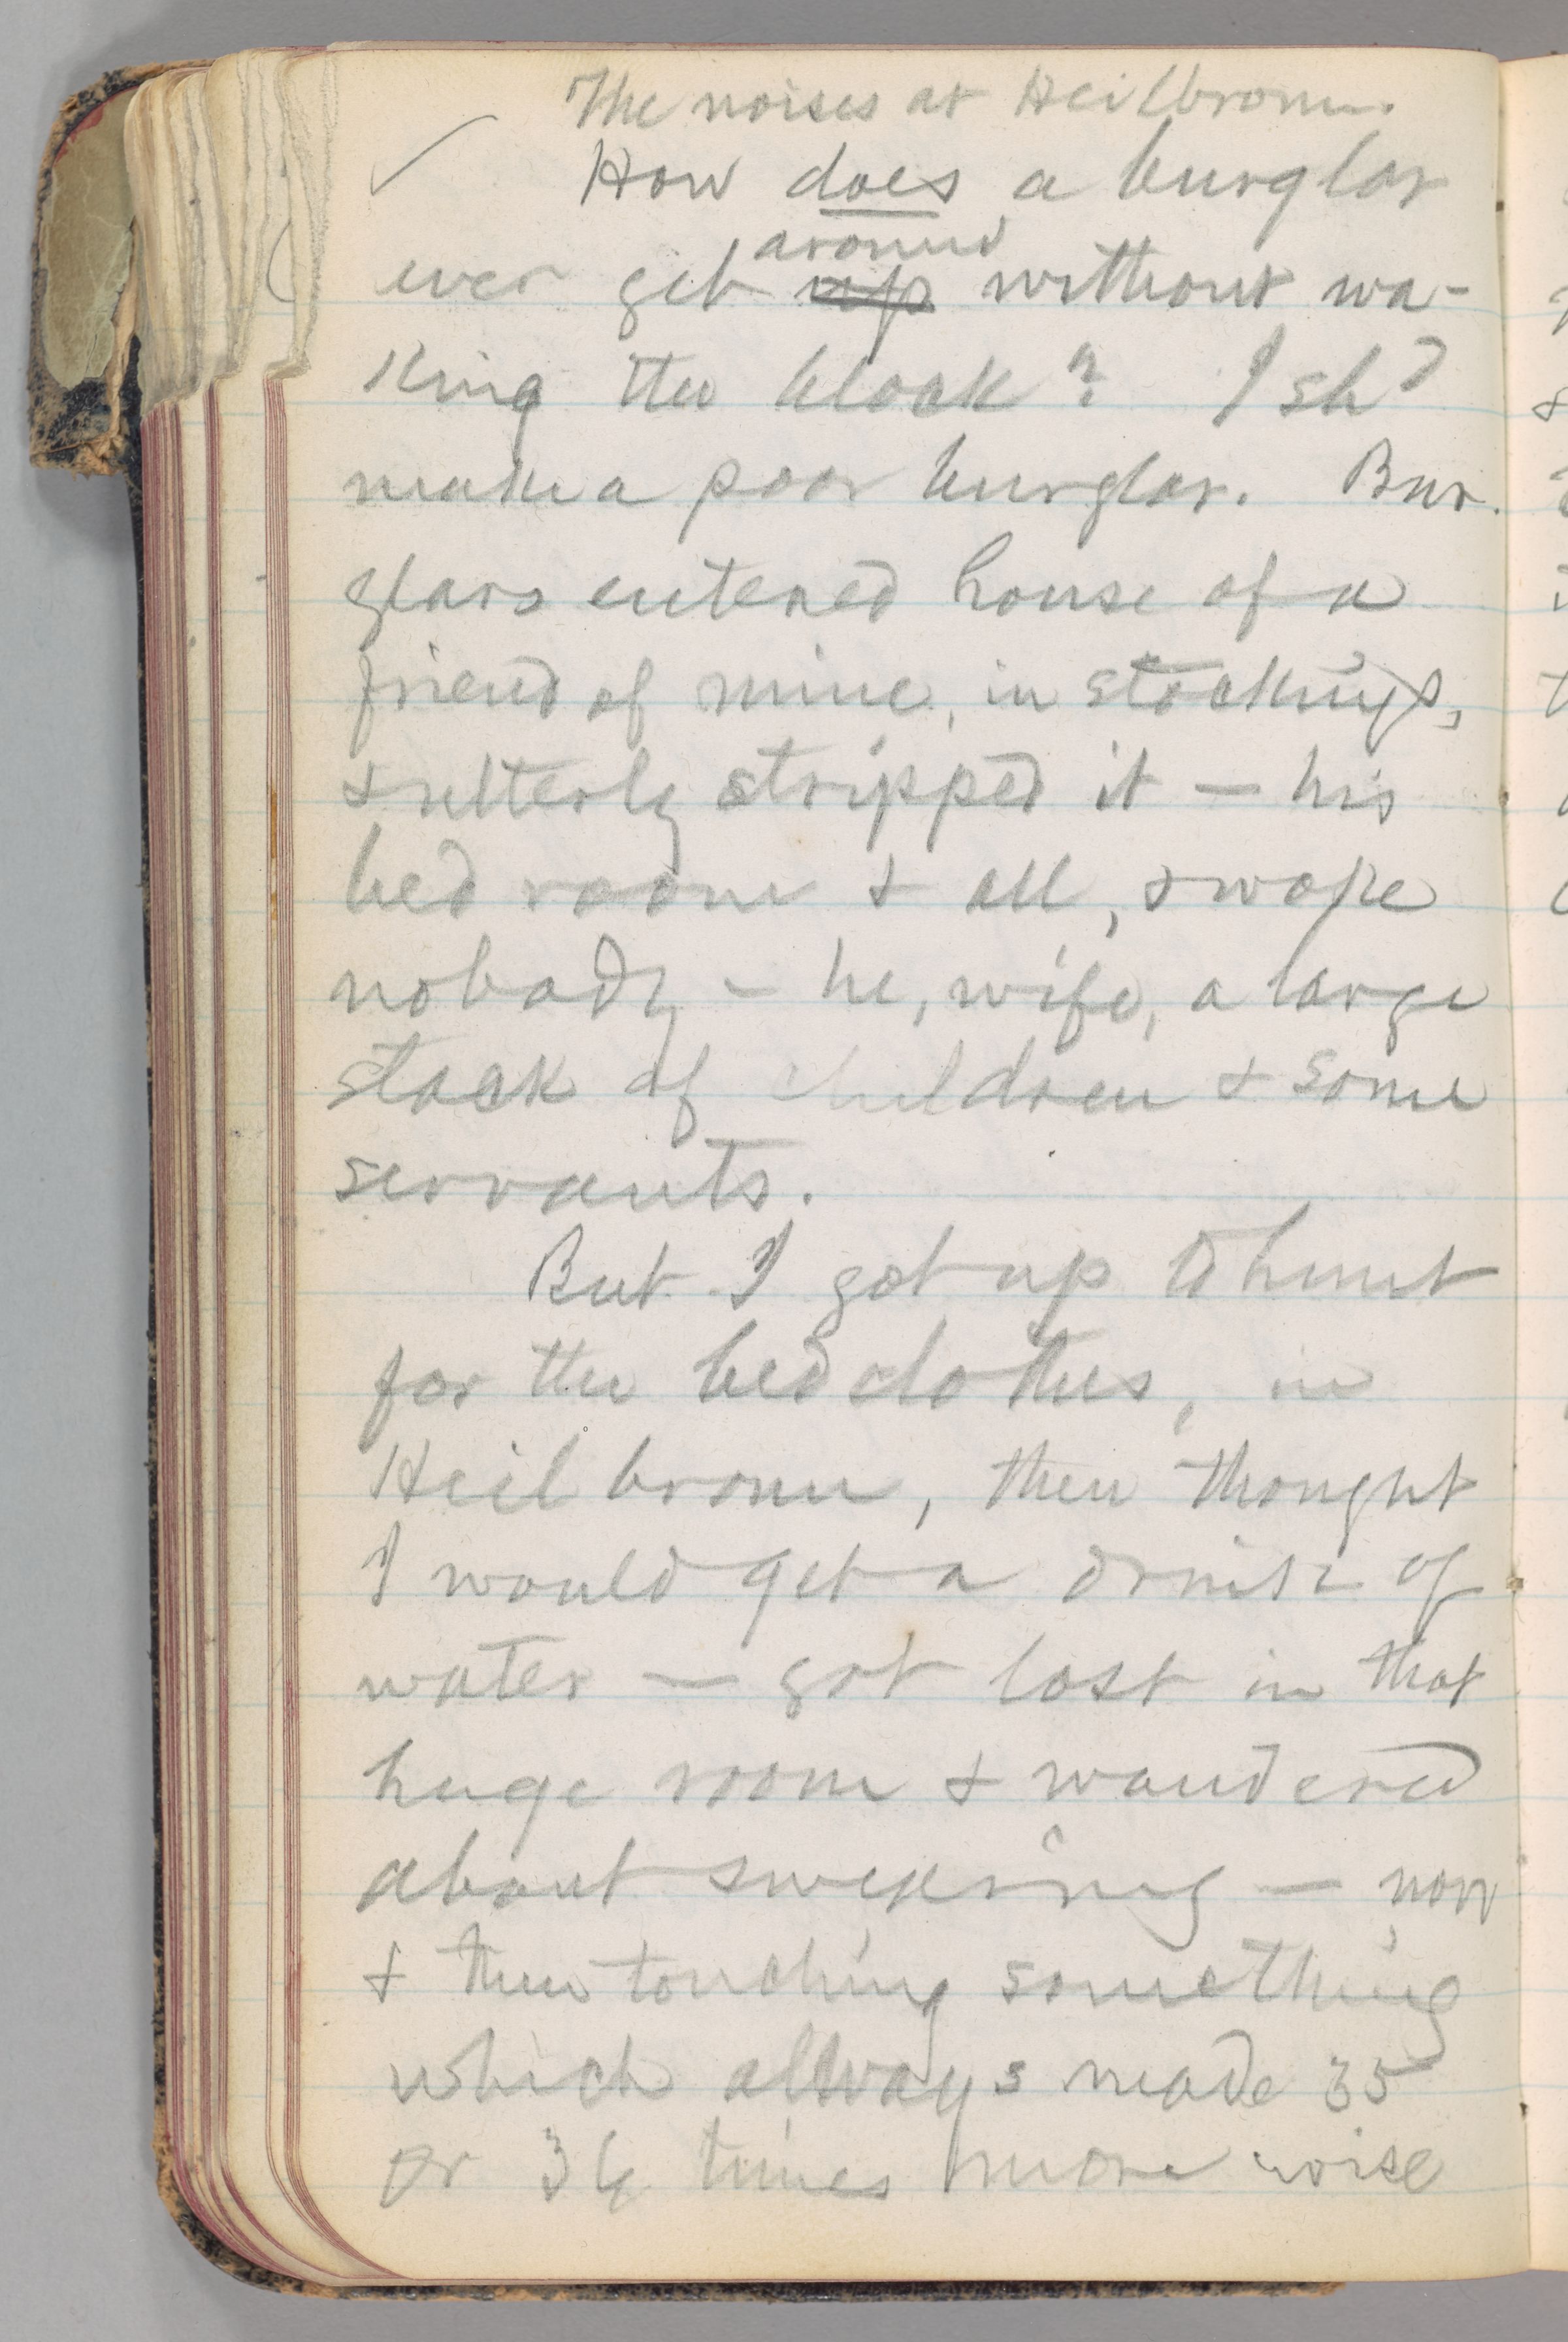 The noises at Heilbronn.
How does a burglar
around
ever get up without wa-
king the block? I shd
make a poor burglar. Bur-
glars entered house of a
friend of mine, in stockings,
& utterly stripped it — his
bed room & all, & woke
nobody — he, wife, a large
stock of children & some
servants.
But I got up to hunt
for the bed clothes, in
Heilbronn, then thought
I would get a drink of
water — got lost in that
huge room & wandered
about swearing — now
& then touching something
which always made 35
or 36 times more noise